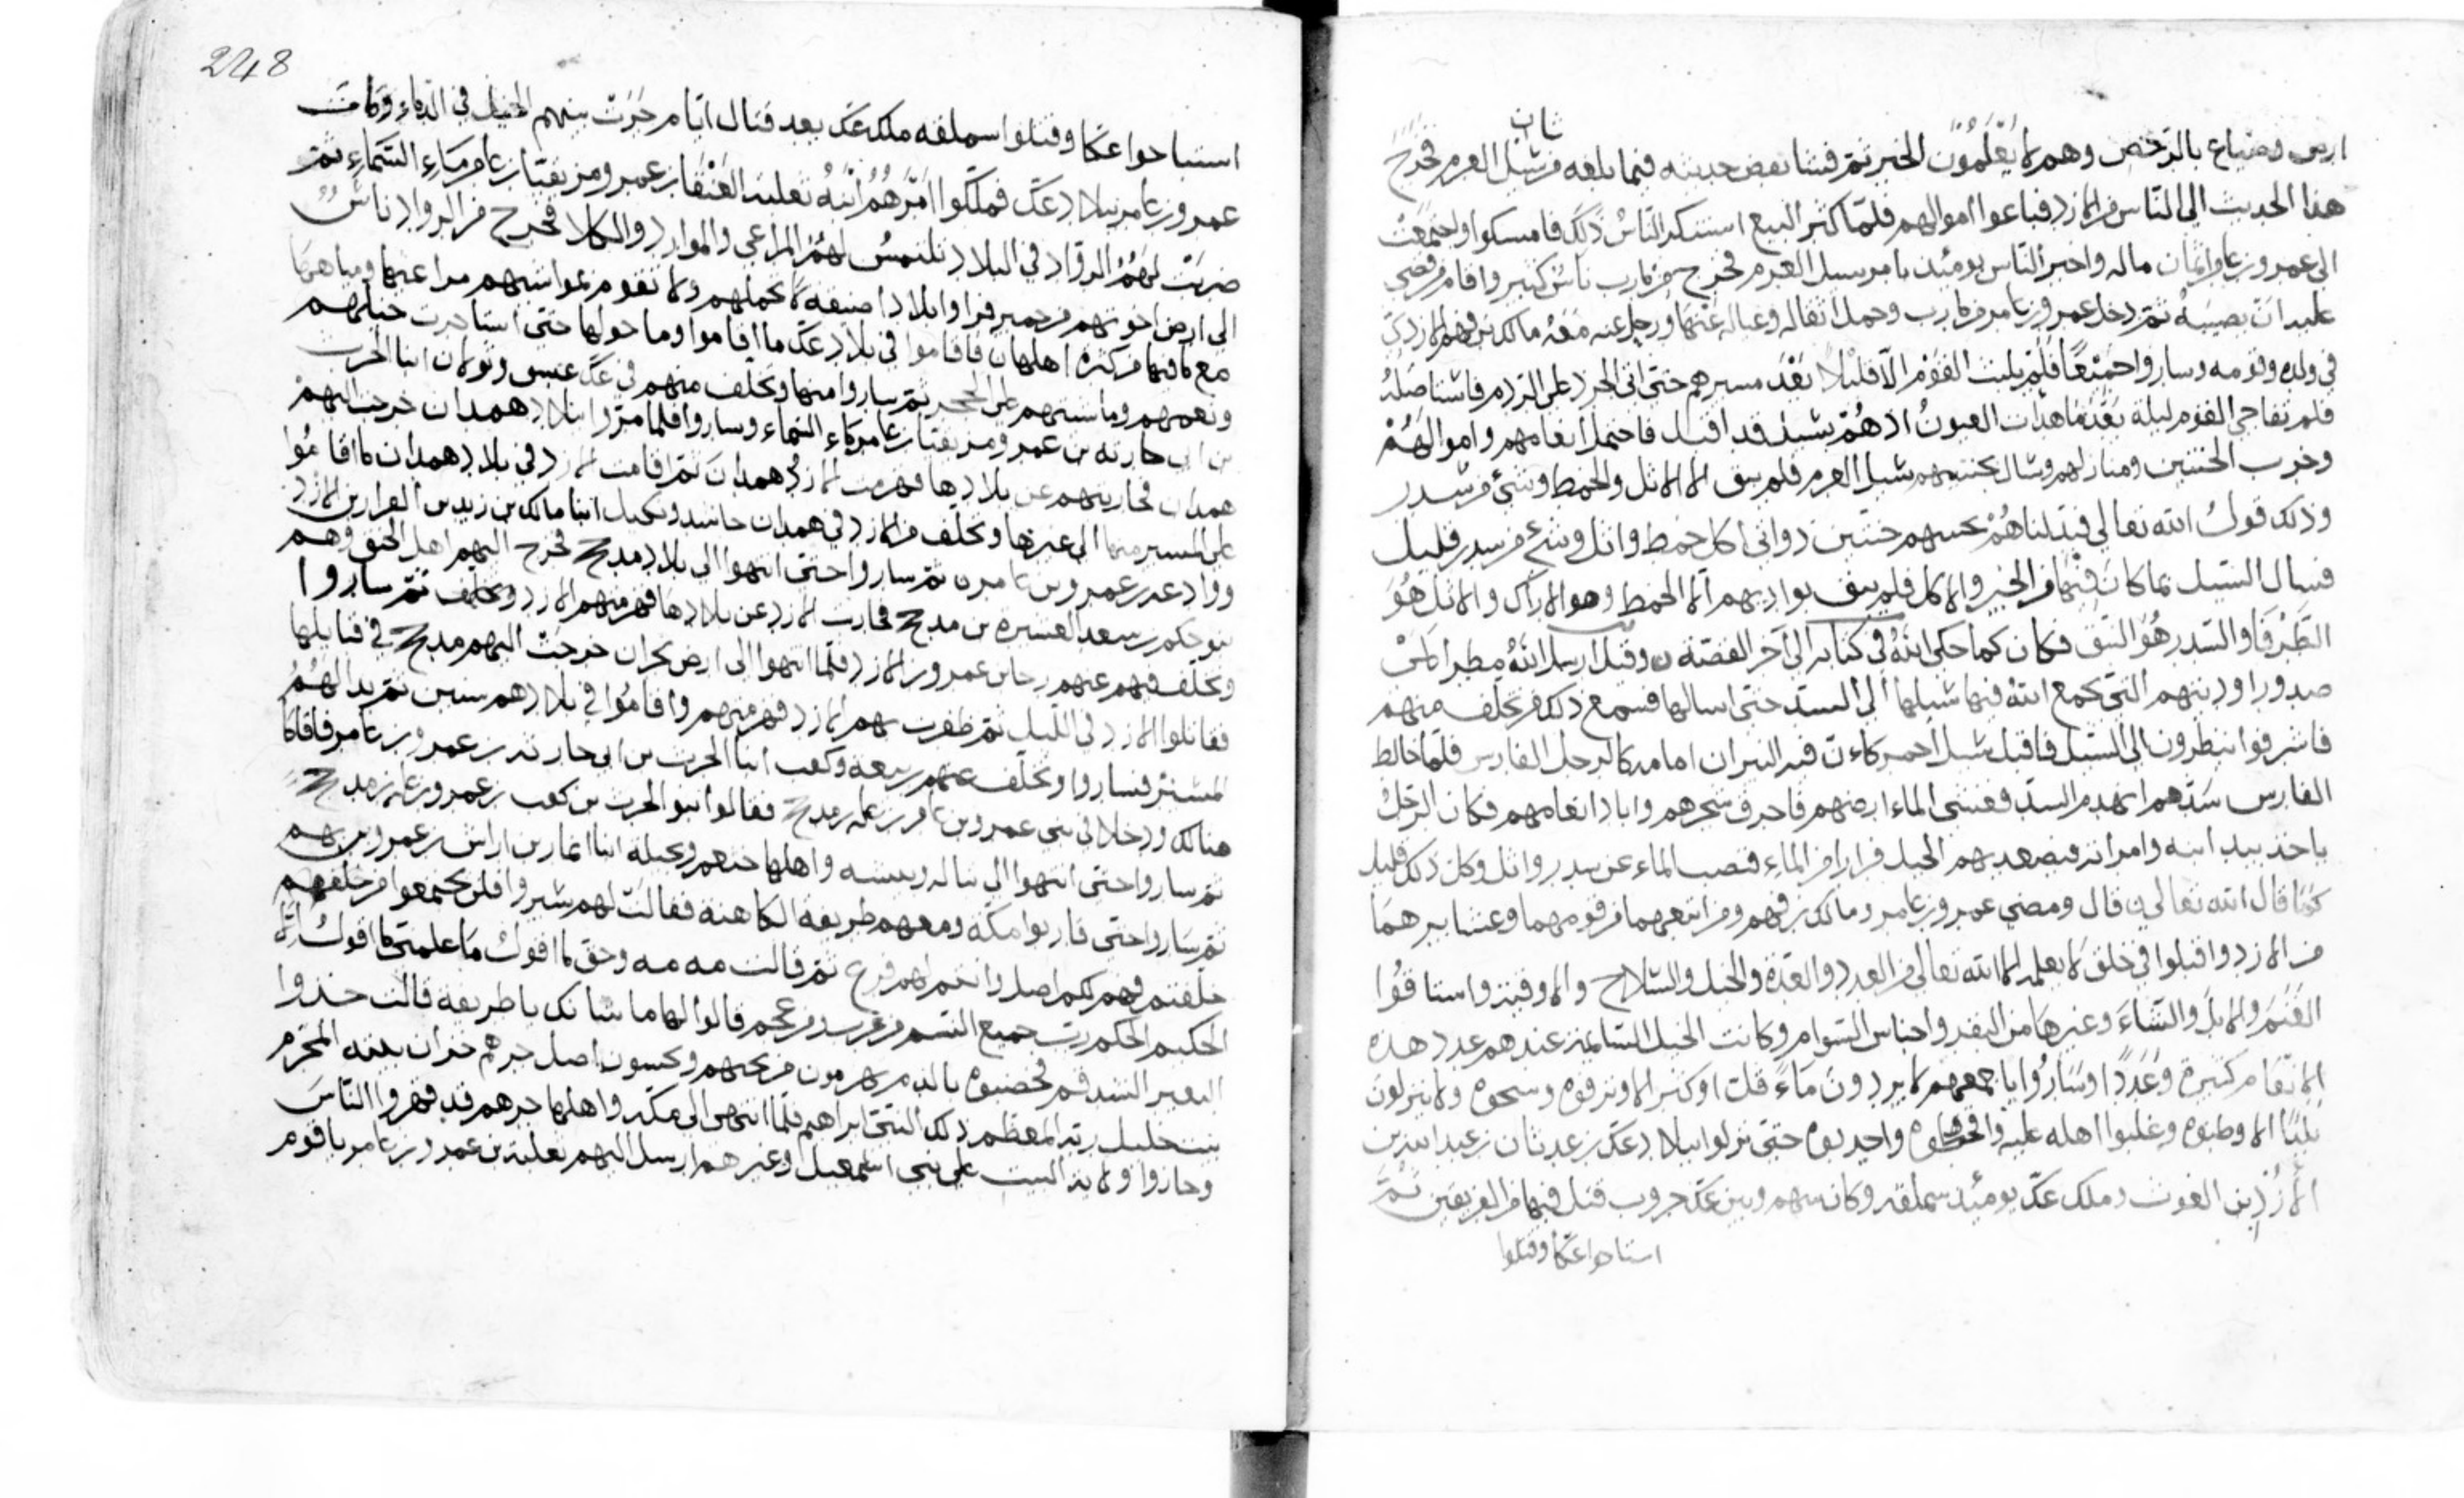 شان
ارض وضياع بالرخص وهم لا يعلمون الخبر ثم فشا بعض حديثه فيما بلغه من سيل العرم فخرج
هذا الحديث الى الناس من الازد فباعوا اموالهم فلما كثر البيع استنكر الناس ذلك فامسكوا واجتمعت
الى عمرو بن عامر اثمان ماله واخبر الناس يومئذ بامر سيل العرم فخرج من مارب ناس كثير واقام من قضى
عليه ان يصيبه ثم رحل عمرو بن عامر من مارب وحمل اثقاله وعياله عنها ورحل عنه معه مالك بن فهم الازدى
في ولده وقومه وساروا جميعًا فلم يلبث القوم الا قليلا بعد مسيرهم حتى اتى الجرذ على الردم فاستاصله
فلم تفاجى القوم ليلة بعدما هدات العيون اذ هم بسيل قد اقبل فاحتمل انعامهم واموالهم
وخرب الجنتين ومنازلهم وسال بجنتيهم سيل العرم فلم يبق الا الاثل والخمط وشئ من سدر
وذلك قول الله تعالى فبدلناهم بجنتيهم جنتين ذواتى اكل خمط واثل وشئ من سدر قليل
فسال السيل بما كان فيها من الخير والاكل فلم يبق بواديهم الا الخمط وهو الاراك والاثل هو
الطرفا والسدر هو النبق فكان كما حكى الله في كتابه الى آخر القصة وقيل ارسل الله مطرا
صدور اوديتهم التى تجمع الله فيها سيلها الى السد حتى اسالها فسمع ذلك من تخلف منهم
فاشرفوا ينظرون الى السيل فاقبل سيل احمر كاءن فيه النيران امامه كالرجل الفارس فلما خالط
الفارس سدهم انهدم السد فغشى الماء ارضهم فاحرق شجرهم وابادا نعامهم فكان الرجل
ياخذ بيد ابنه وامراته فيصعد بهم الجبل فرارا من الماء فنصب الماء عن سدر واثل وكل ذلك قليل
كما قال الله تعالى قال ومضى عمرو بن عامر ومالك بن فهم ومن اتبعهما من قومهما وعشايرهما
من الازد واقبلوا في خلق لا يعلمه الا الله تعالى من العدد والعدة والخيل والسلاح واستاقوا
الغنم والابل والشاء وغيرها من البقر واجناس السوام وكانت الخيل السايمة عندهم عدد هذه
الانعام كثيرة وعددا وساروا باجمعهم لا يردون ماء قلت او كثر الا ونزفوه وسحوه ولا ينزلون
بلدا الا وطئوه وغلبوا اهله عليه حتى نزلوا بلاد عك بن عدنان بن عبد الله بن
الازد بن الغوث وملك عك يومئذ سملقه وكان بينهم وبين عك حروب قتل فيها من الفريقين ثم
استباحوا عكا وقتلوا
248
استباحوا عكا وقتلوا سملقه ملك عك بعد قتال ايام جرت بينهم الخيل في الدماء وكانت
عمرو بن عامر ببلاد عك فملكوا امرهم ابنه ثعلبة العنقا بن عمرو مزيقيا بن عامر ماء السماء ثم
ضربت لهم الرواد في البلاد تلتمس لهم المراعى والموارد والكلا فخرج من الرواد ناس
الى ارض اخوتهم من حمير فراوا بلادا ضيقه لا تحملهم ولا تقوم بمواشيهم مراعيها ومياهها
مع ما فيها من كثرة اهلها فاقاموا في بلاد عك ما اقاموا وما حولها حتى استاخرت خيلهم
ونعمهم وماشيتهم ثم ساروا منها وتخلف منهم في عك عبس وبولان ابنا الحرب
بن ابى حارثه بن عمرو مزيقيا بن عامر ماء السماء وساروا فلما مروا ببلاد همدان خرجت اليهم
همدان فحاربتهم عن بلادها فهزمت الازد همدان ثم اقامت الازد في بلاد همدان ما اقاموا
على المسير منها الى غيرها وتخلف من الازد في همدان حاشد وبكيل ابنا مالك بن زيد بن الازد
ووادعه بن عمرو بن عامر ثم ساروا حتى انتهوا الى بلاد مدحج فخرج اليهم اهل الحق وهم
بنو حكم بن سعد العشيرة بن مدحج فحاربت الازد عن بلادها فهزمتهم الازد وتخلف ثم ساروا
وتخلف فيهم عنهم رجا بن عمرو بن الازد فلما انتهوا الى ارض نجران خرجت اليهم مدحج في قبايلها
فقاتلوا الازد في الليل ثم ظفرت بهم الازد فهزمتهم واقاموا في بلادهم سنين ثم بدا لهم
المسير فساروا وتخلف عنهم ربيعه وكعب ابنا الحرث بن ابى حارثه بن عمرو بن عامر فاقاما
هنالك ودخلا في بنى عمرو بن عامر بن عله بن مدحج فقالوا بنو الحرث بن كعب بن عمرو بن عله بن مدحج
ثم ساروا حتى انتهوا الى تباله وبيشه واهلها خثعم وبجيله ابنا انمار بن اراش بن عمرو بهم
ثم ساروا حتى قاربوا مكه ومعهم طريفه الكاهنه فقالت لهم سيروا فلن تجتمعوا من خلفهم
خلفتم فهم لكم اصل وانتم لهم فرع ثم قالت مه مه وحق ما اقول ما علمنى ما اقول الا
الحكيم المحكم رب جميع النسم من عرب ومن عجم قالوا لها ما شانك يا طريفه قالت خذوا
البعير الشدقم فخضبوه بالدم جيران بيته المحرم
بيت خليل ربه المعظم ذلك النبى ابراهيم فلما انتهى الى مكه واهلها جرهم قد قهروا الناس
وحازوا ولاية البيت على بنى اسمعيل وغيرهم ارسل اليهم ثعلبه بن عمرو بن عامر يا قوم